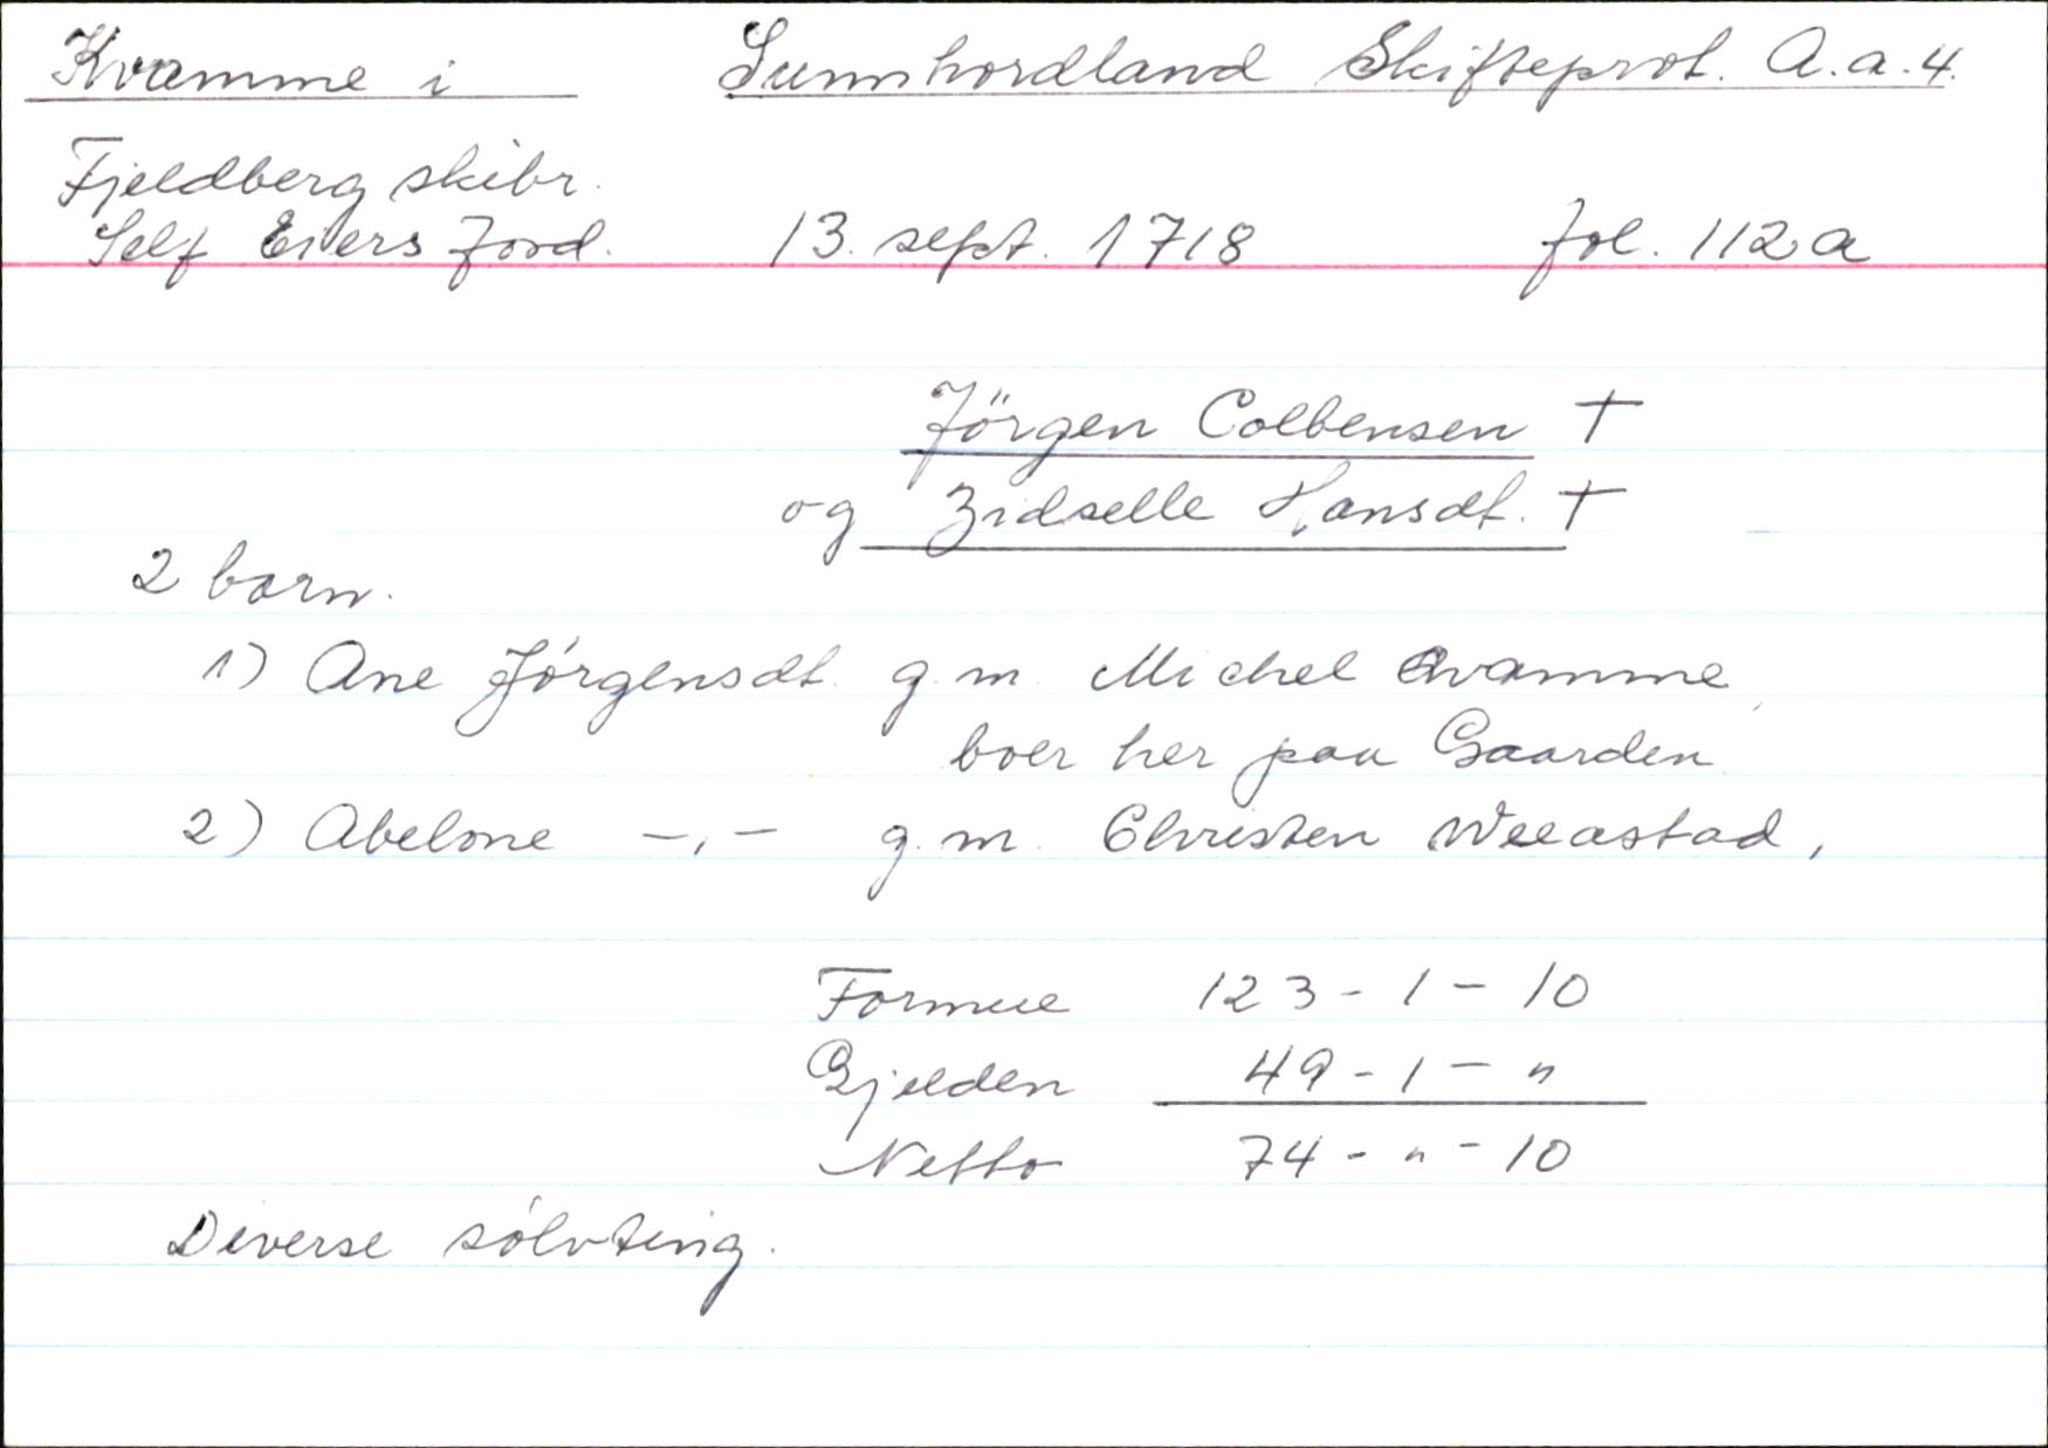 Kvamme i Sunnhordland Skifteprot. A.a.4.
Fjeldberg skibr.
Self Eiers Jord. 13. sept. 1718 fol. 112a
Jörgen Colbensen †
og Zidselle Hansdt. †
2 barn.
1) Ane Jórgensdt. g.m. Michel Qvamme,
boer her paa Gaarden.
2) Abelone -,- g.m. Christen Weeastad,
Formue 123 - 1 - 10
Gjelden 49 - 1 - "
Netto 74 - " - 10
Diverse sólvting.